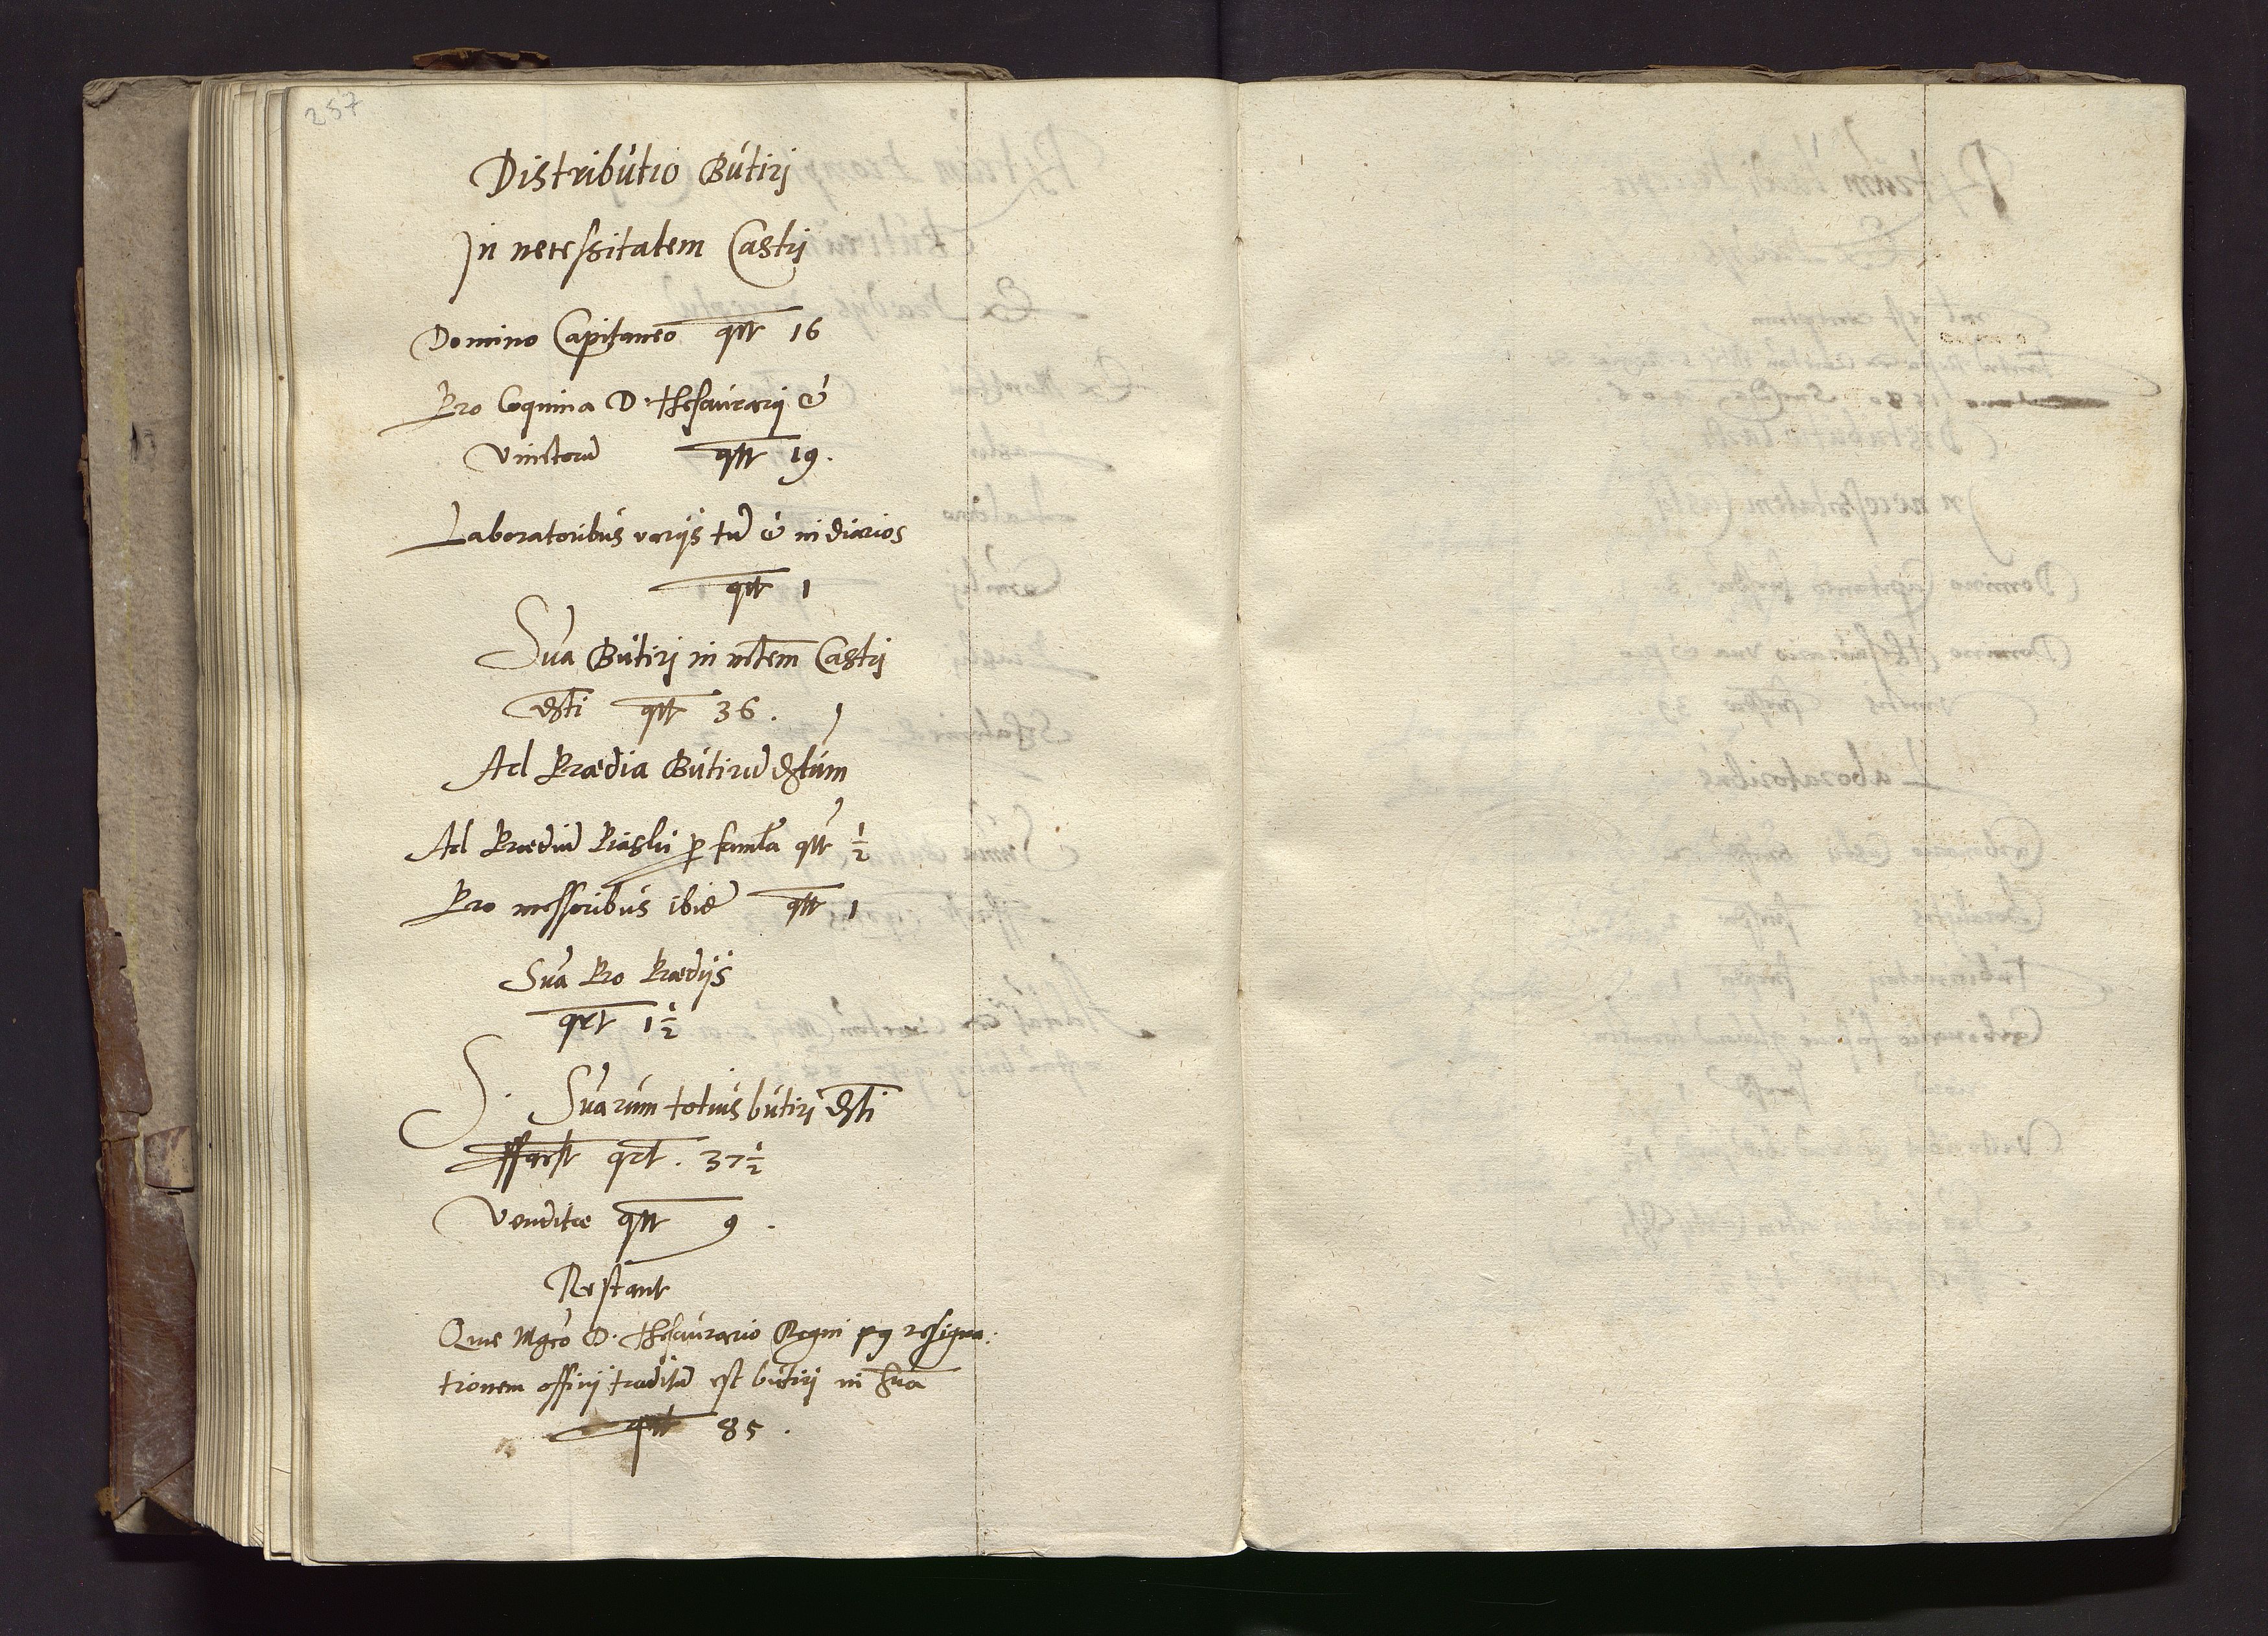 257
Distributio Butirj
In necessitatem Castrj
Domino Capitaneo qrt 16
Pro Coquina D. thesaurarij &
Vinctorũ qrt 19.
Laboratoribus varijs tũ & in diarios
qrt 1
Sũa Butirj in nctem Castrj
dsti qrt 36.
Ad Prædia Butirũ dstum
Ad Prædiũ p famła qrt ½
Pro messoribus ibiđ qrt 1
Sũa Pro Prædijs
qrt 1½
S. Sũarum totius butirj dsti
qrt. 37½
Venditæ qrt 9.
Restant
Que Mgco D. thesaurario Regni resigna:
tionem officij traditũ est butirj in Sũa
qrt 85.